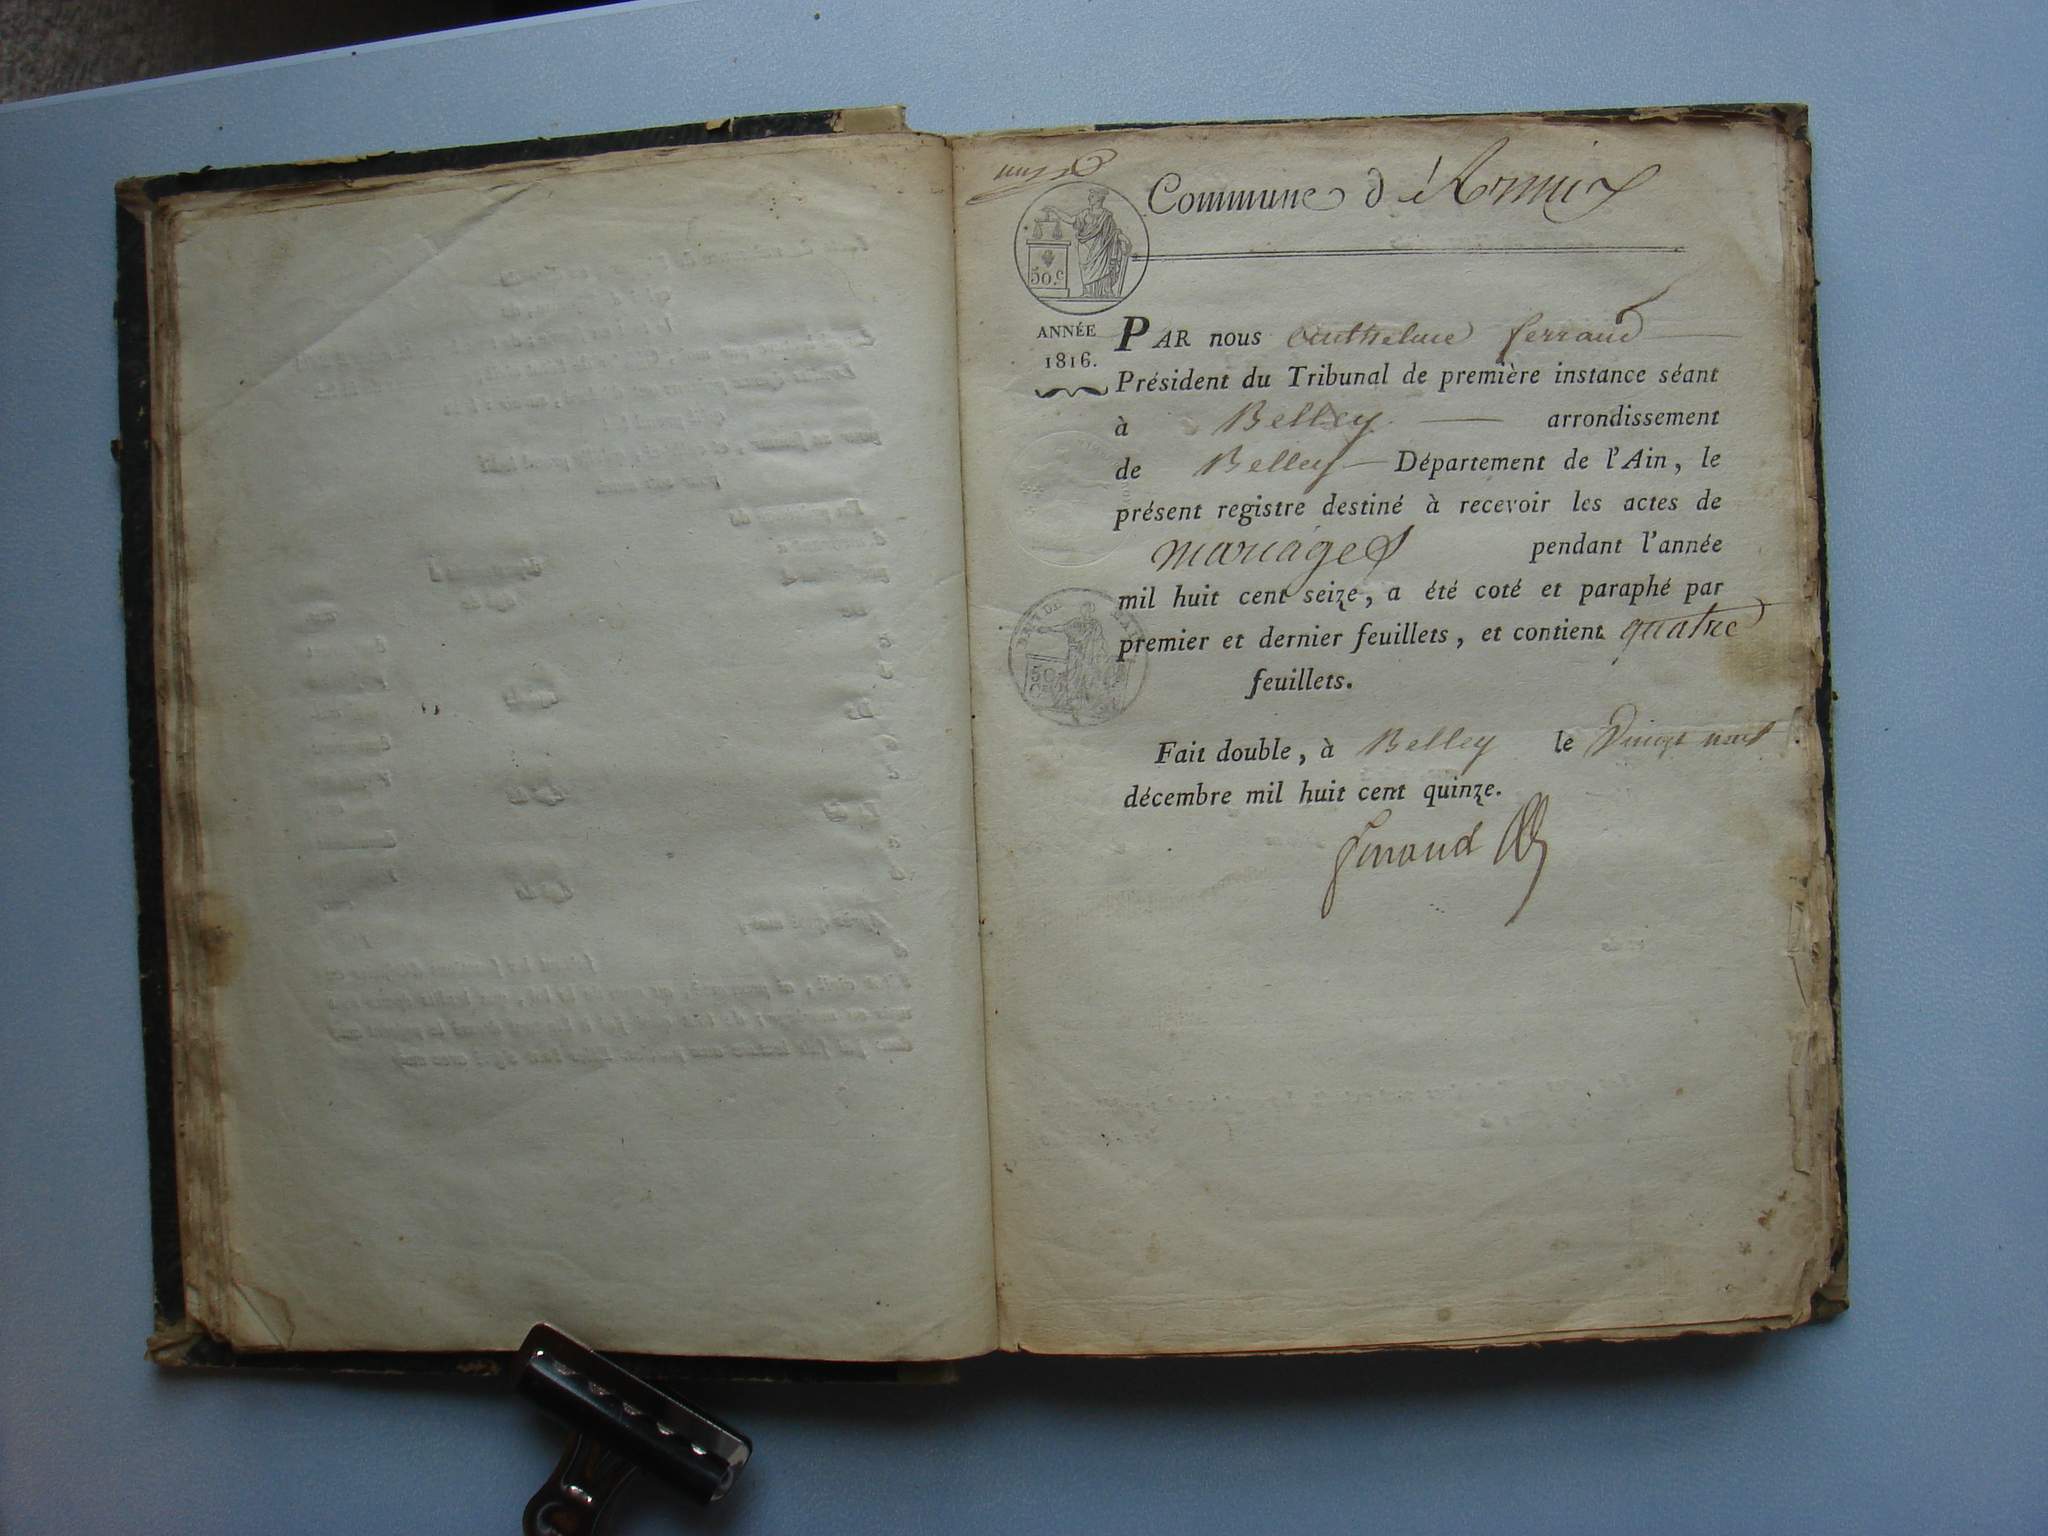 Commune d'Armix
50.c
ANNÉE
1816.
PAR nous Anthelme ferrand
Président du Tribunal de première instance séant
à Belley arrondissement
de Belley Département de l'Ain, le
présent registre destiné à recevoir les actes de
mariages pendant l'année
mil huit cent seize, a été coté et paraphé par
premier et dernier feuillets, et contient quatre
feuillets.
50
Fait double, à Belley le Vingt neuf
décembre mil huit cent quinze.
ferrand